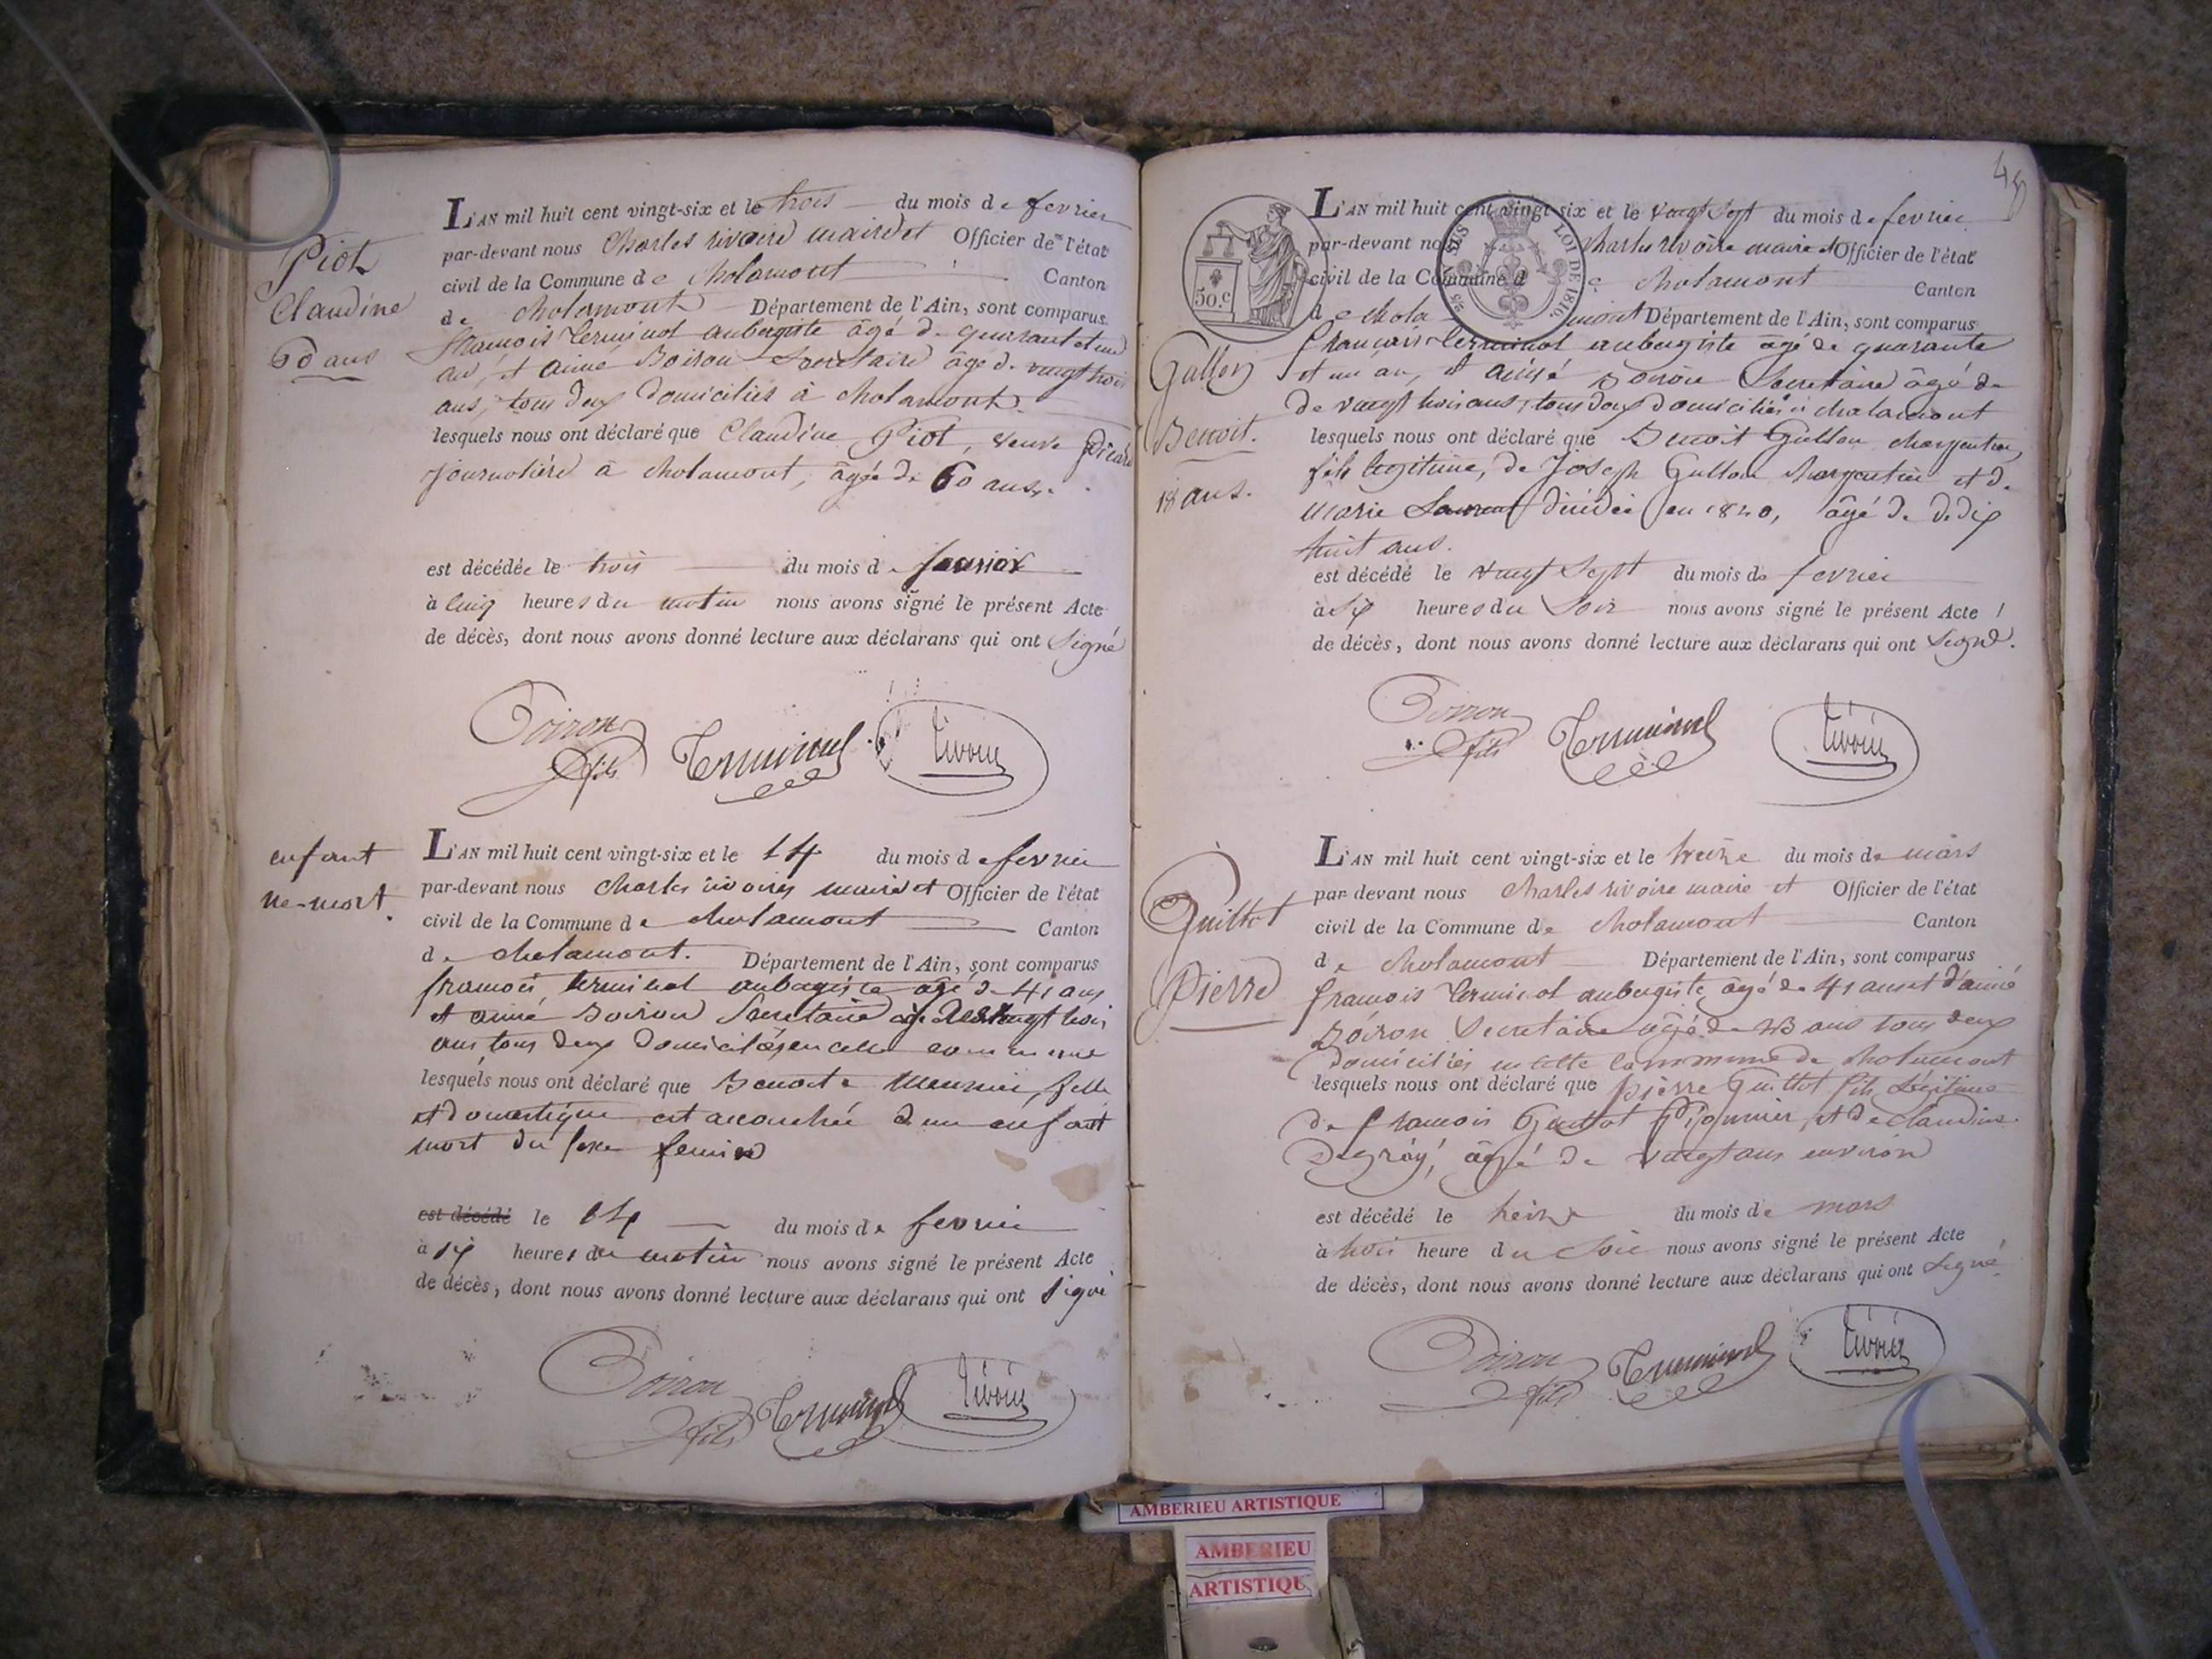 Piot
Claudine
60 ans
L'AN mil huit cent vingt-six et le trois du mois de fevrier
par-devant nous Charles rivoire maire et Officier de l'état
civil de la Commune de cholamont Canton
de cholamont Département de l'Ain, sont comparus
francois Terminol aubergiste âgé de quarant et un
an, et aimé Boiron Secretaire âgé de vingt trois
ans, tous deux domiciliés à cholamont
lesquels nous ont déclaré que Claudine Piot, veuve
journalière à cholamont, âgée de 60 ans.
est décédée le trois du mois de fevrier
à cinq heures du matin nous avons signé le présent Acte
de décès, dont nous avons donné lecture aux déclarans qui ont signé
Boiron fils Terminol rivoire
enfant
ne-mort.
L'AN mil huit cent vingt-six et le 14 du mois de fevrier
par-devant nous Charles rivoire maire et Officier de l'état
civil de la Commune de cholamont Canton
de cholamont. Département de l'Ain, sont comparus
francois terminol aubergiste âgé de 41 ans
et aimé Boiron Secretaire âgé de vingt trois
ans tous deux domiciliés en cette commune
lesquels nous ont déclaré que Benoite Meunier, fille
et domestique est accouchée d'un enfant
mort du sexe feminin
est décédé le 14 du mois de fevrier
à six heures du matin nous avons signé le présent Acte
de décès, dont nous avons donné lecture aux déclarans qui ont signé
Boiron fils Terminol rivoire
48
50.c
LOI DE 1816.
Gullon
Benoit.
18 ans.
L'AN mil huit cent vingt-six et le vingt sept du mois de fevrier
par-devant nous Charles rivoire maire et Officier de l'état
civil de la Commune de cholamont Canton
de cholamont Département de l'Ain, sont comparus
francois Terminol aubergiste âgé de quarante
et un an, et aimé Boiron Secretaire âgé de
de vingt trois ans, tous deux domiciliés à chalamont
lesquels nous ont déclaré que Benoit Gullon charpentier,
fils legitime, de Joseph Gullon charpentier et de
Marie Laurent décédée en 1820, âgé de de dix
huit ans.
est décédé le vingt sept du mois de fevrier
à six heures du soir nous avons signé le présent Acte
de décès, dont nous avons donné lecture aux déclarans qui ont signé.
Boiron fils Terminol rivoire
Guillot
Pierre
L'AN mil huit cent vingt-six et le treize du mois de mars
par devant nous Charles rivoire maire et Officier de l'état
civil de la Commune de cholamont Canton
de cholamont Département de l'Ain, sont comparus
francois Terminol aubergiste âgé de 41 ans et d'aimé
Boiron Secretaire âgé de 23 ans tous deux
domiciliés en cette commune de cholamont
lesquels nous ont déclaré que pierre Guillot fils Légitime
de francois Guillot et de Claudine
Degray, âgé de vingt ans environ
est décédé le treize du mois de mars
à trois heure du soir nous avons signé le présent Acte
de décès, dont nous avons donné lecture aux déclarans qui ont signé
Boiron fils Terminol rivoire
AMBERIEU ARTISTIQUE
AMBERIEU
ARTISTIQU